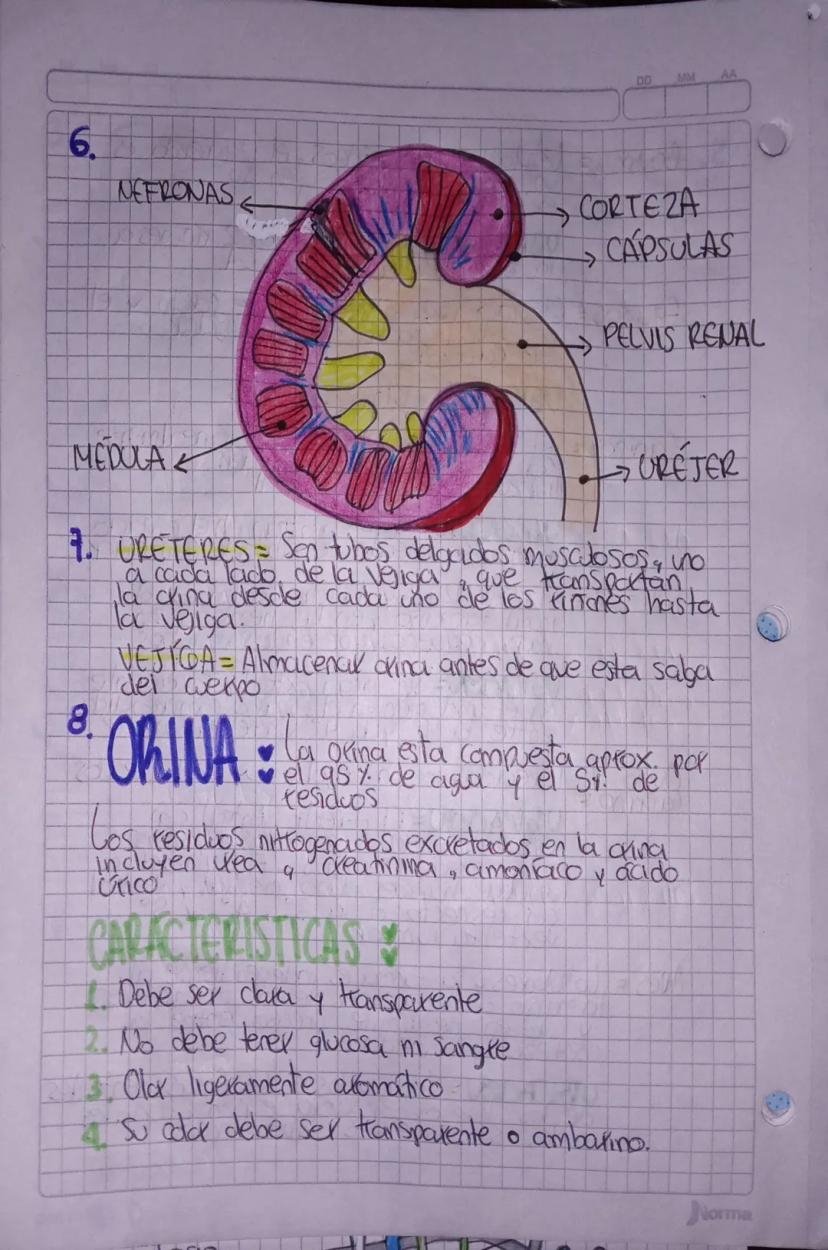 DD MM AA
6.
NEFRONAS
CORTEZA
CÁPSULAS
PELVIS RENAL
MÉDULA
URÉTER
7. URÉTERES = Son tubos delgados musculosos, uno
a cada lado de la vejiga, que transportan
la orina desde cada uno de los riñones hasta
la vejiga.
VEJIGA = Almacenar orina antes de que esta salga
del cuerpo
8.
ORINA : La orina esta compuesta aprox. por
el 95% de agua y el 5% de
residuos
Los residuos nitrogenados excretados en la orina
incluyen urea, creatinina, amoníaco y ácido
úrico
CARACTERISTICAS :
1. Debe ser clara y transparente
2. No debe tener glucosa ni sangre
3. Olor ligeramente aromático
4. Su color debe ser transparente o ambarino.
Norma